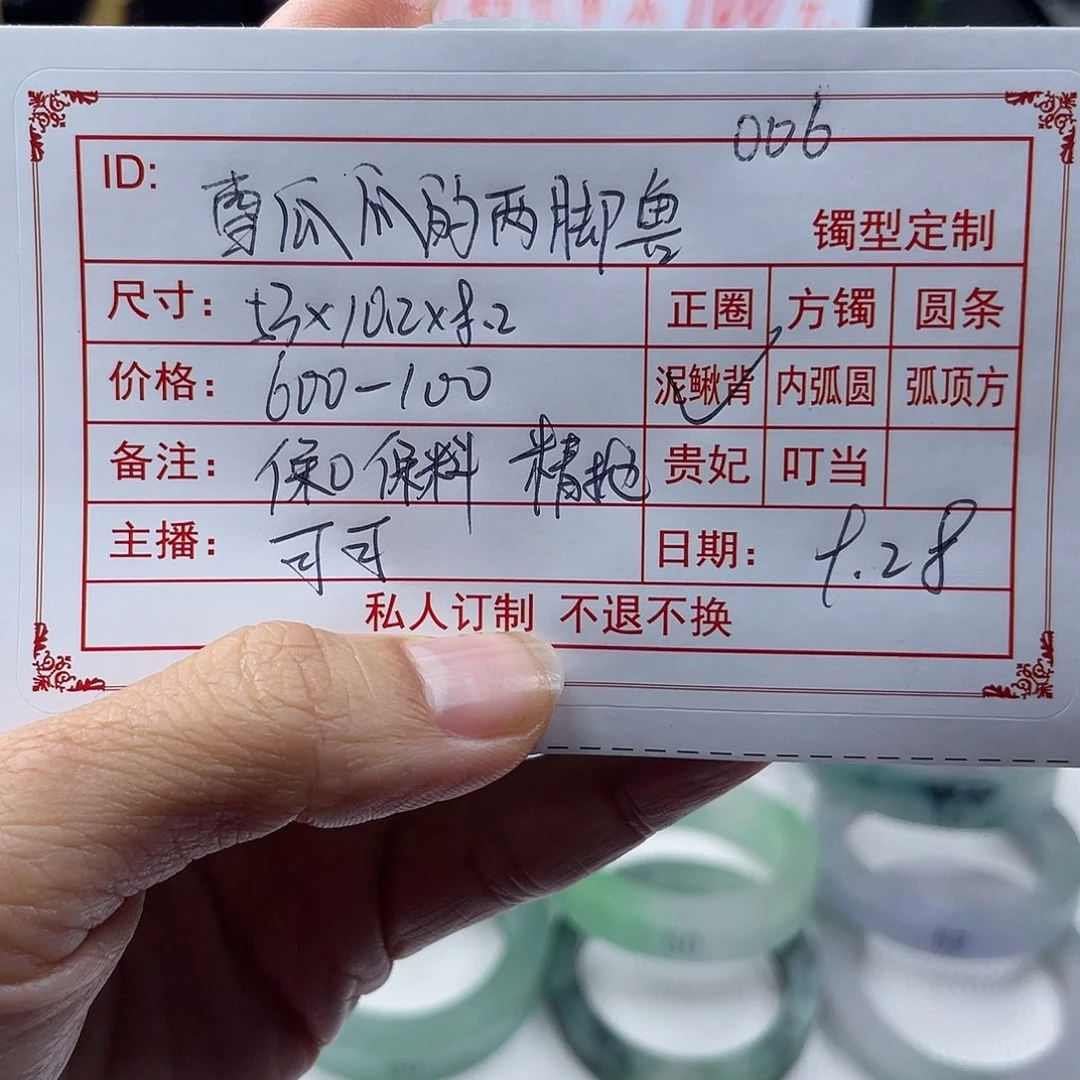 006
ID: 曹瓜瓜的两脚兽
镯型定制
尺寸: 53×10.2×8.2
正圈 方镯 圆条
价格: 600-100
泥鳅背 内弧圆 弧顶方
备注: 保口保料 精抛
贵妃 叮当
主播: 可可
日期: 9.28
私人订制 不退不换